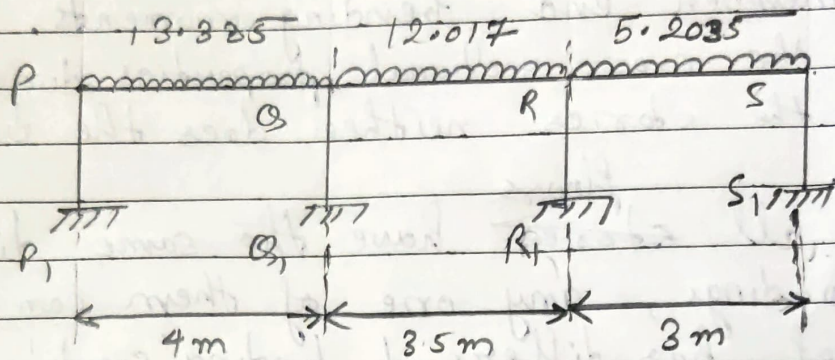 13.325 12.017 5.2035
P Q R S
P1 Q1 R1 S1
4m 3.5m 3m